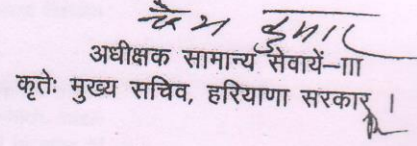 कुमार
अधीक्षक सामान्य सेवायें–III
कृतेः मुख्य सचिव, हरियाणा सरकार ।